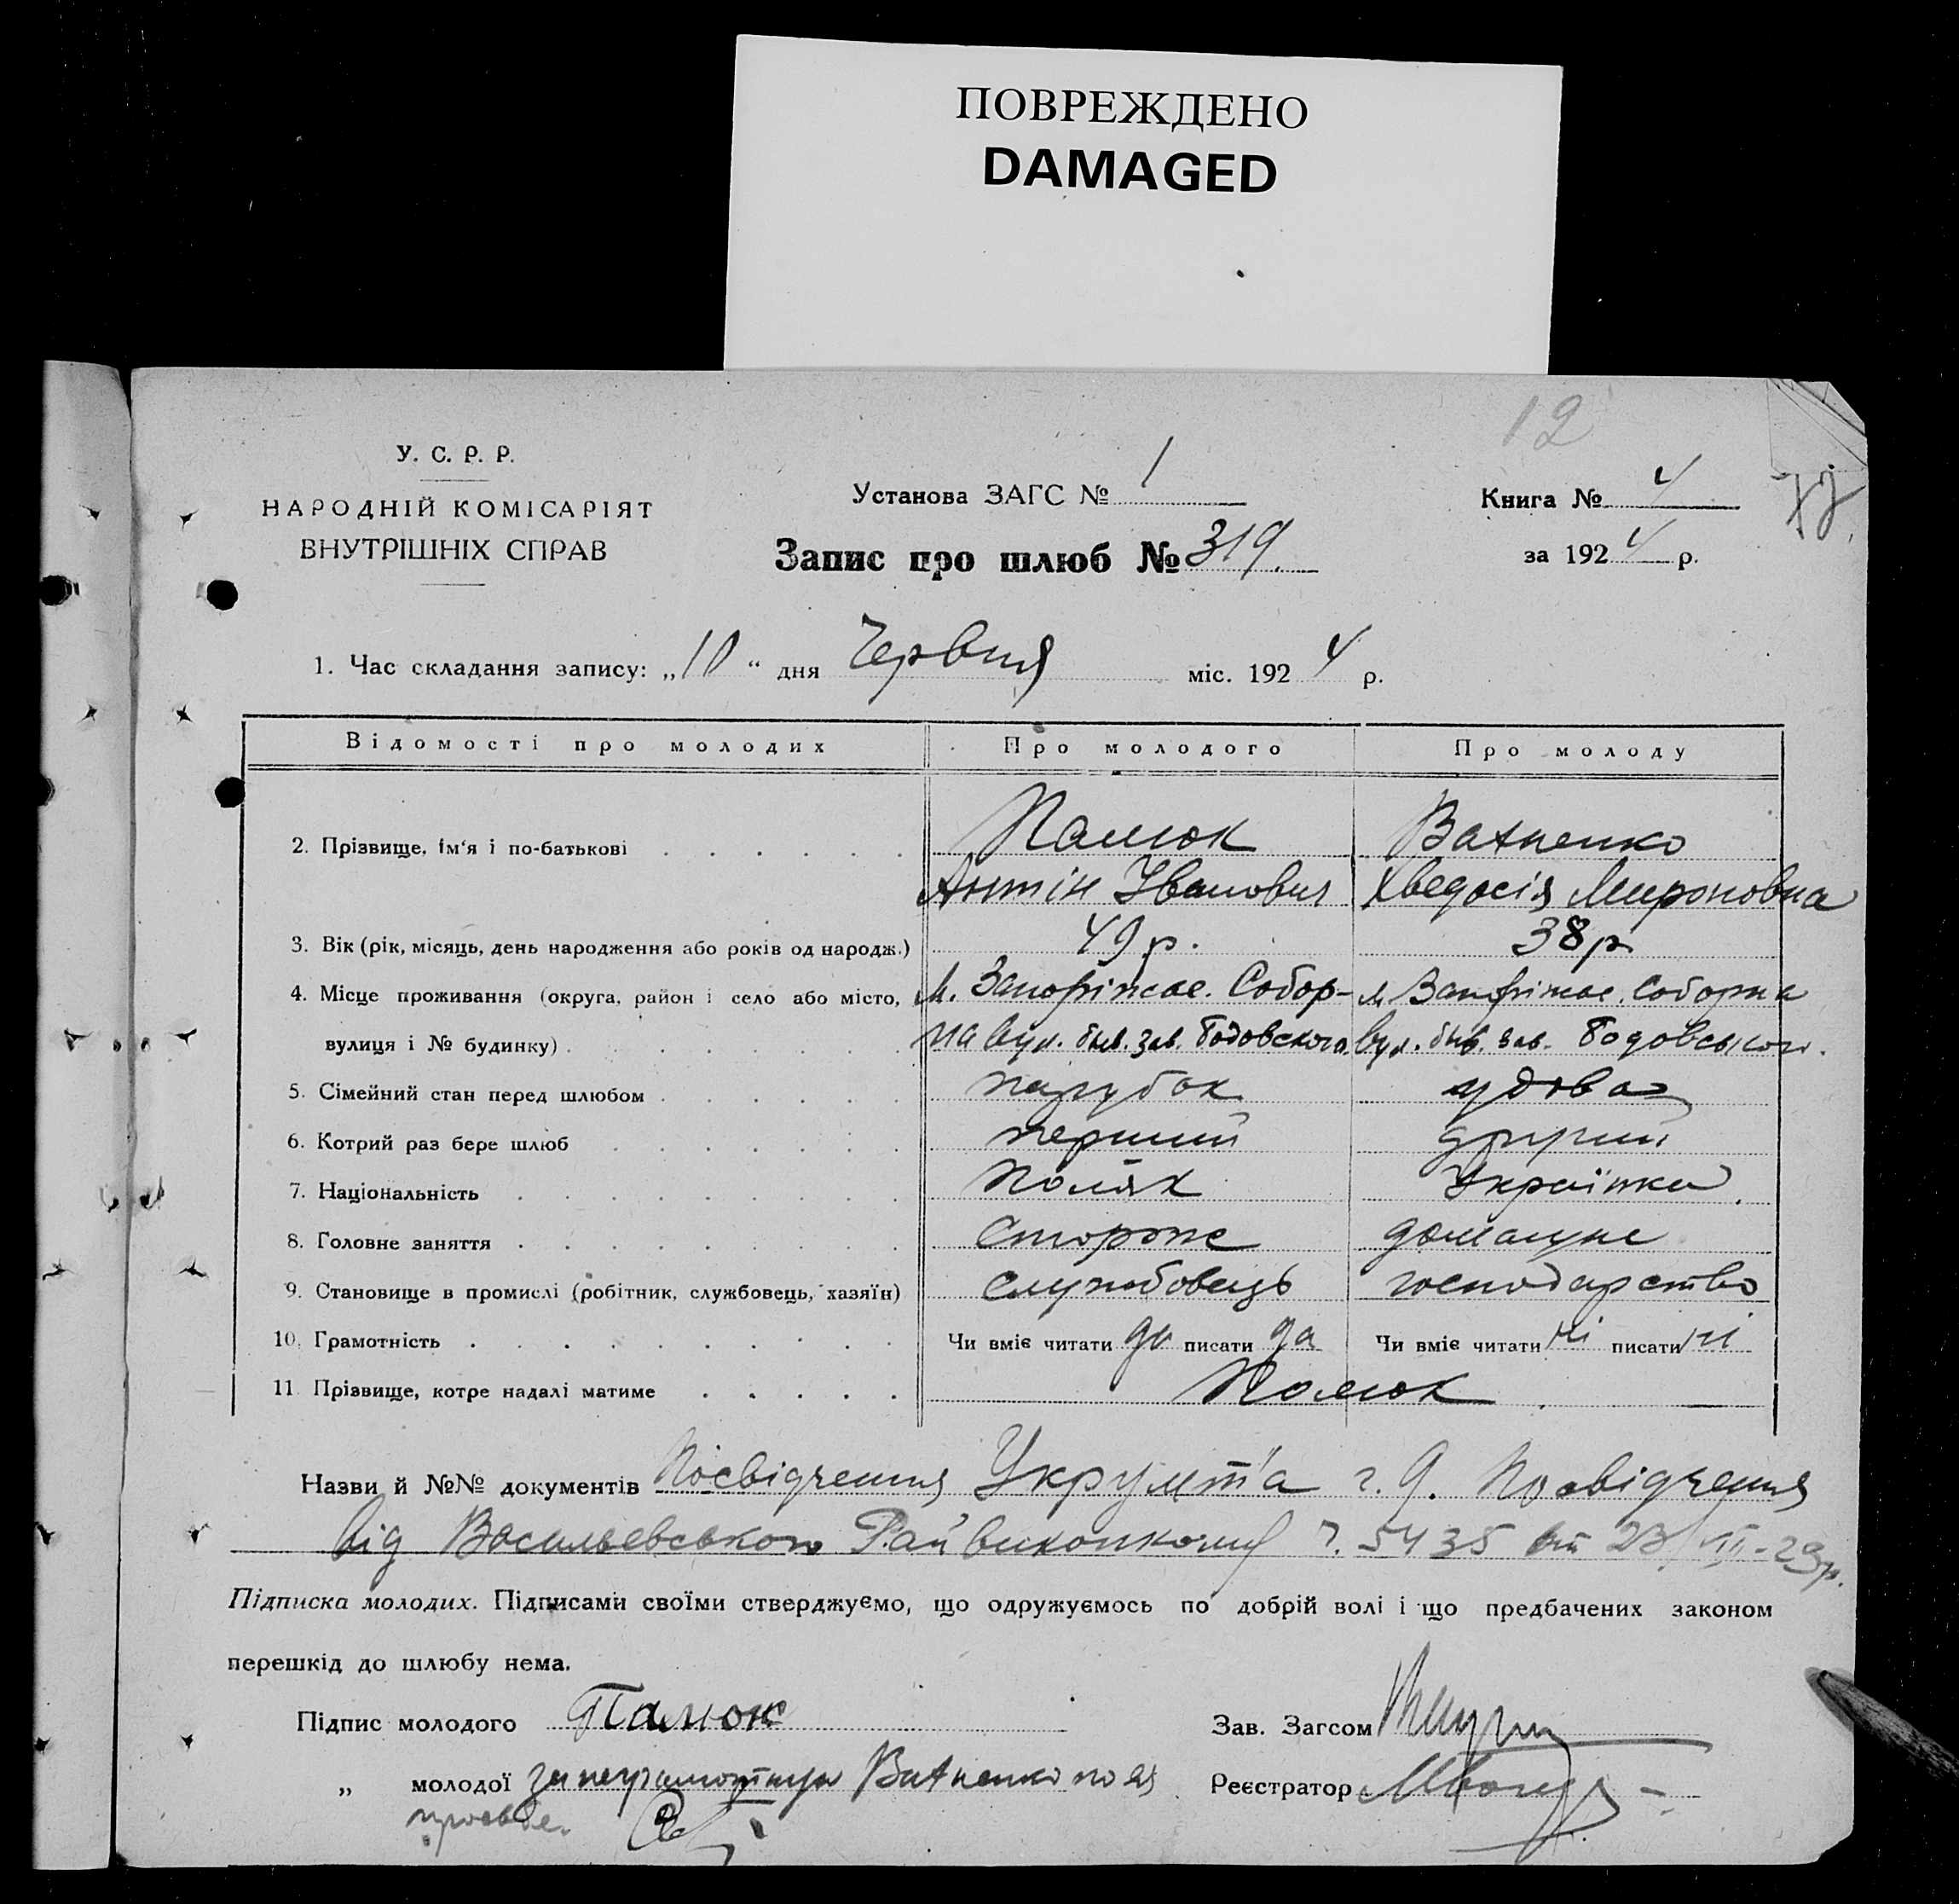 ПОВРЕЖДЕНО
DAMAGED
12
У. С. Р. Р.
НАРОДНІЙ КОМІСАРІЯТ
ВНУТРІШНІХ СПРАВ
Установа ЗАГС № 1
Книга № 4
Запис про шлюб № 319.
за 1924 р.
1. Час складання запису: „10“ дня Червня міс. 1924 р.
Відомості про молодих Про молодого Про молоду
2. Прізвище, ім‘я і по-батькові Палюк Вахненко
Антін Іванович Хведосія Мироновна
3. Вік (рік, місяць, день народження або років од народж.) 49 р. 38 р
4. Місце проживання (округа, район і село або місто, М. Запоріжжє. Собор- м Запоріжжє. Соборна
вулиця і № будинку) на вул. бив. зав. Бодовского. вул. бив. зав. Бодовського.
5. Сімейний стан перед шлюбом парубок удова
6. Котрий раз бере шлюб перший другий
7. Національність Поляк Українка.
8. Головне заняття Сторож домашнє
9. Становище в промислі (робітник, службовець, хазяїн) службовець господарство
10. Грамотність Чи вміє читати да писати да Чи вміє читати ні писати ні
11. Прізвище, котре надалі матиме Палюк
Назви й №№ документів Посвідчення ч. 9. Посвідчення
від Васильевського Райвиконкому ч. 5435 23/ -23р.
Підписка молодих. Підписами своїми стверджуємо, що одружуємось по добрій волі і що предбачених законом
перешкід до шлюбу нема.
Підпис молодого Палюк
Зав. Загсом
„ молодої за неграмотную Вахненко по ея
Реєстратор
просьбе.